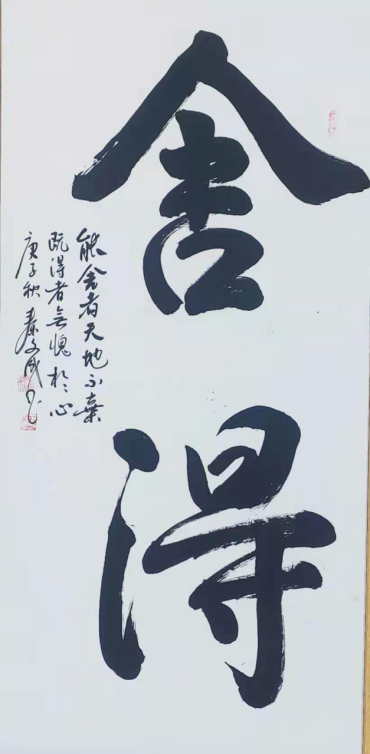 舍
得
能舍者天地不棄
既得者無愧於心
庚子秋秦文成書